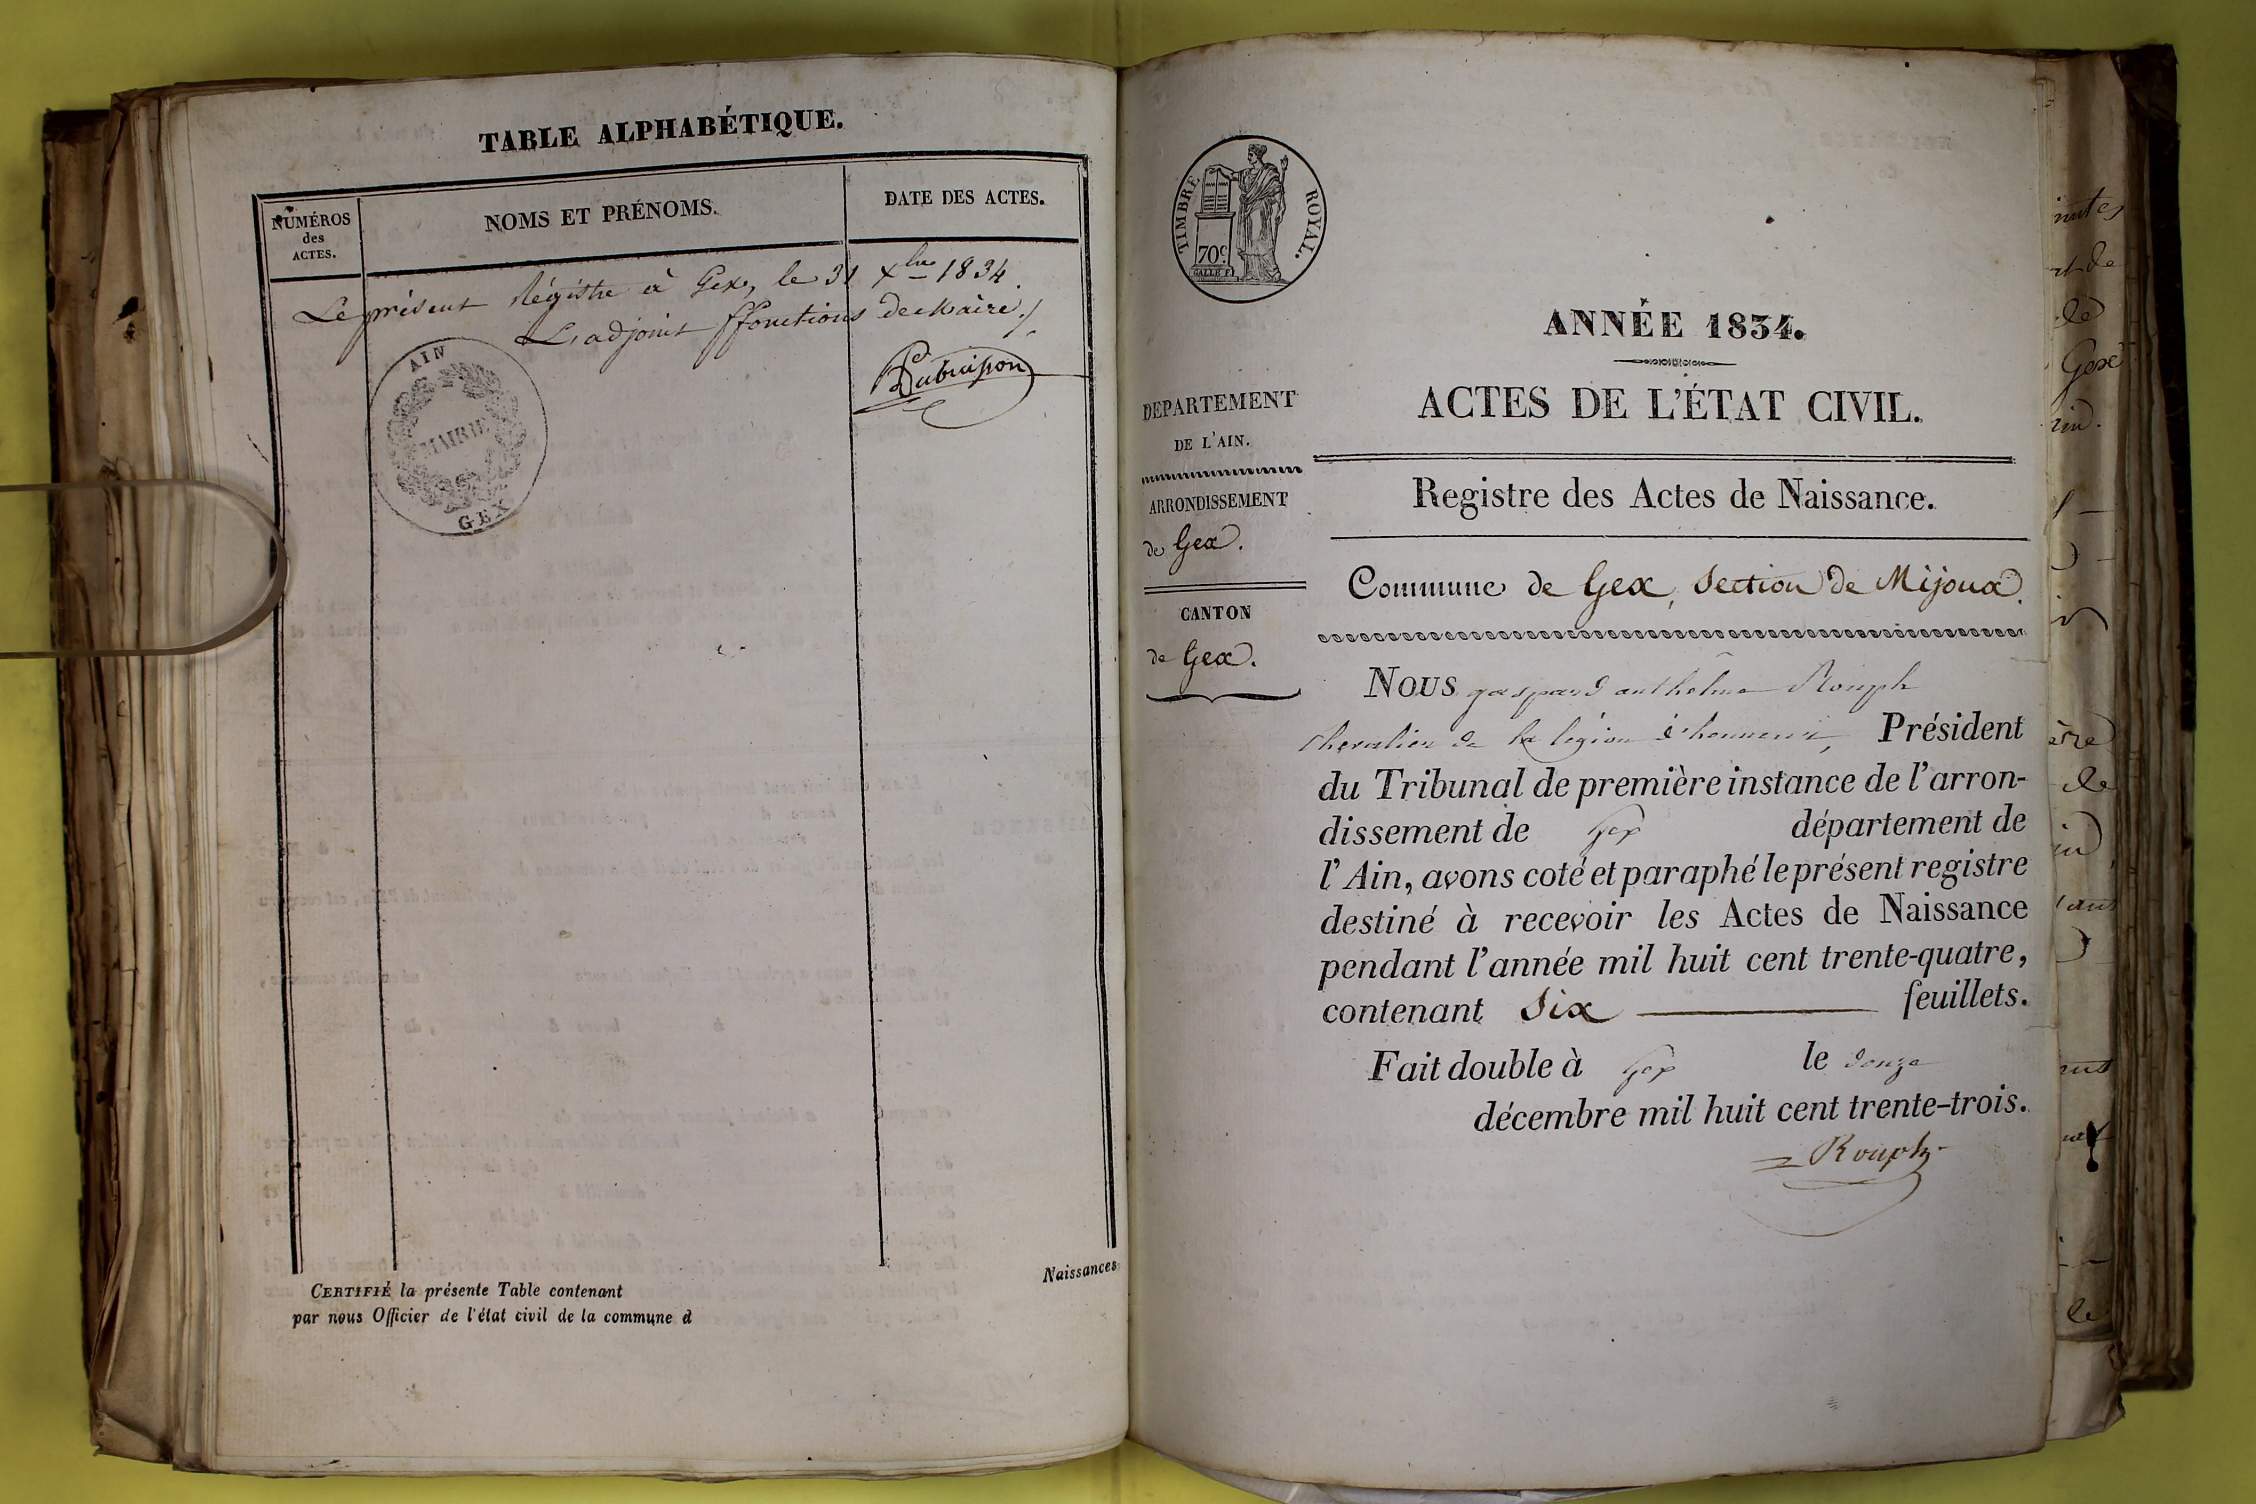 TABLE ALPHABÉTIQUE.
NUMÉROS
des
ACTES.
NOMS ET PRÉNOMS.
DATE DES ACTES.
Le présent Régistre à Gex, le 31 xbre 1834.
L'adjoint ffonctions de Maire./
Dubuisson
AIN
MAIRIE
GEX
CERTIFIÉ la présente Table contenant
Naissances
par nous Officier de l'état civil de la commune d
TIMBRE ROYAL.
70c.
ANNÉE 1834.
ACTES DE L'ÉTAT CIVIL.
DEPARTEMENT
DE L'AIN.
ARRONDISSEMENT
de Gex.
CANTON
de Gex.
Registre des Actes de Naissance.
Commune de Gex, section de Mijoux.
NOUS gaspard anthelme Rouph
chevalier de la légion d'honneur, Président
du Tribunal de première instance de l'arron-
dissement de Gex département de
l'Ain, avons coté et paraphé le présent registre
destiné à recevoir les Actes de Naissance
pendant l'année mil huit cent trente-quatre,
contenant six feuillets.
Fait double à Gex le douze
décembre mil huit cent trente-trois.
Rouph